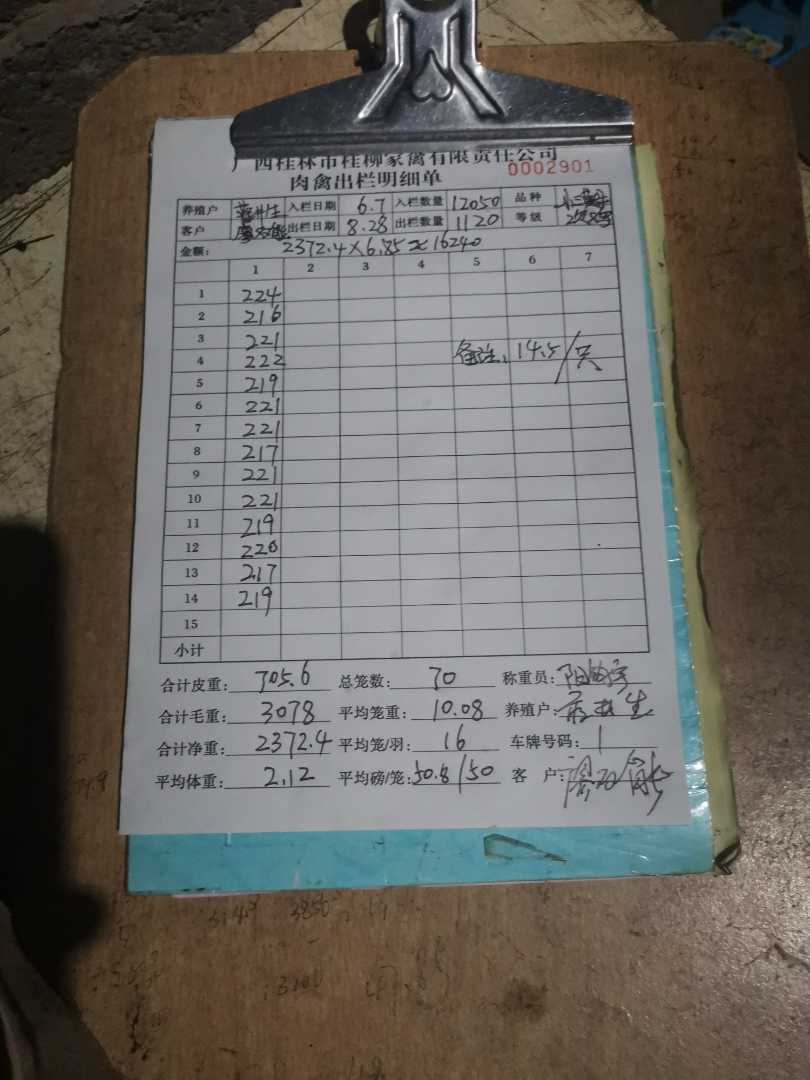 广西桂林市桂柳家禽有限责任公司
0002901
肉禽出栏明细单
养殖户 入栏日期 6.7 入栏数量 12050 品种
客户 出栏日期 8.28 出栏数量 1120 等级
金额: 2372.4×6.85≈16240
1 2 3 4 5 6 7
1 224
2 216
3 221
4 222 备注: 14.5/只
5 219
6 221
7 221
8 217
9 221
10 221
11 219
12 220
13 217
14 219
15
小计
合计皮重: 705.6 总笼数: 70 称重员:
合计毛重: 3078 平均笼重: 10.08 养殖户:
合计净重: 2372.4 平均笼/羽: 16 车牌号码: 1
平均体重: 2.12 平均磅/笼: 50.8/50 客户: